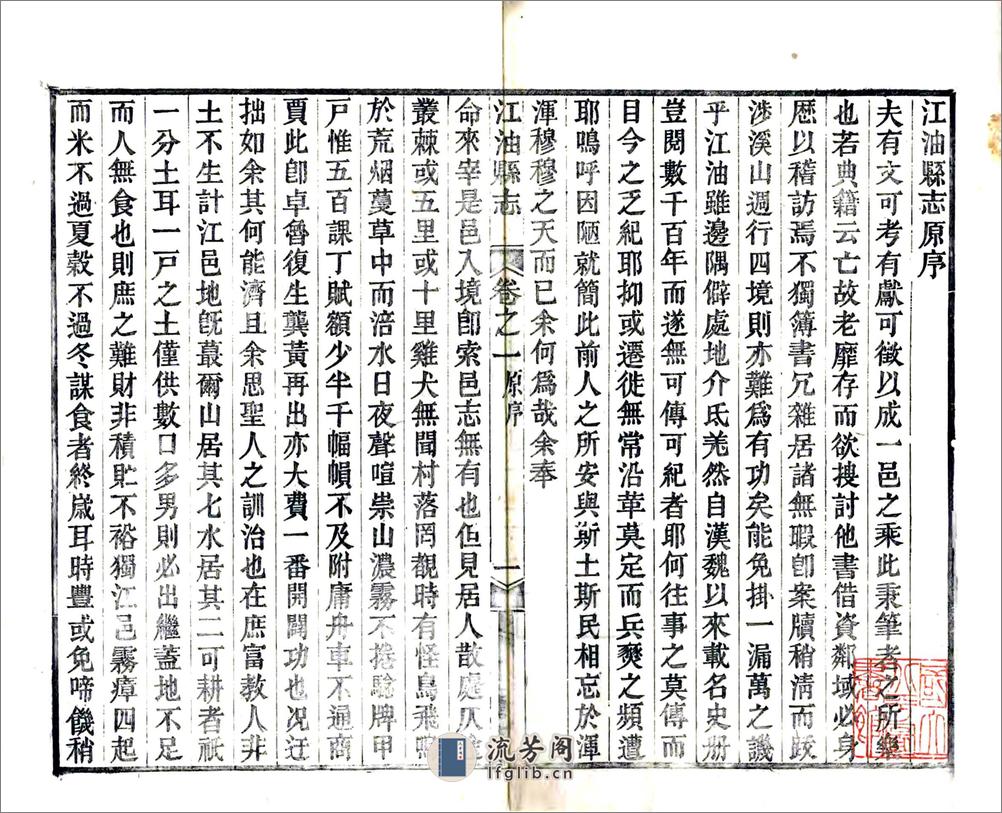 江油縣志原序
夫有文可考有獻可徵以成一邑之乘此秉筆者之所樂
也若典籍云亡故老靡存而欲搜討他書借資鄰域必身
歷以稽訪焉不獨簿書冗雜居諸無暇卽案牘稍淸而跋
涉溪山週行四境則亦難爲有功矣能免掛一漏萬之譏
乎江油雖邊隅僻處地介氐羌然自漢魏以來載名史册
豈閱數千百年而遂無可傳可紀者耶何往事之莫傳而
目今之乏紀耶抑或遷徙無常沿革莫定而兵燹之頻遭
耶嗚呼因陋就簡此前人之所安與斯土斯民相忘於渾
渾穆穆之天而已余何爲哉余奉
江油縣志 卷之一 原序 一
命來宰是邑入境卽索邑志無有也但見居人散處仄
叢棘或五里或十里雞犬無聞村落罔觀時有怪鳥飛
於荒烟蔓草中而涪水日夜聲喧崇山濃霧不捲騐牌甲
戸惟五百課丁賦額少半千幅幀不及附庸舟車不通商
賈此卽卓魯復生龔黃再出亦大費一番開闢功也况迂
拙如余其何能濟且余思聖人之訓治也在庶富教人非
土不生計江邑地旣蕞爾山居其七水居其二可耕者祇
一分土耳一戸之土僅供數口多男則必出繼蓋地不足
而人無食也則庶之難財非積貯不裕獨江邑霧瘴四起
而米不過夏穀不過冬謀食者終歲耳時豐或免啼饑稍
流芳阁
lfglib.cn